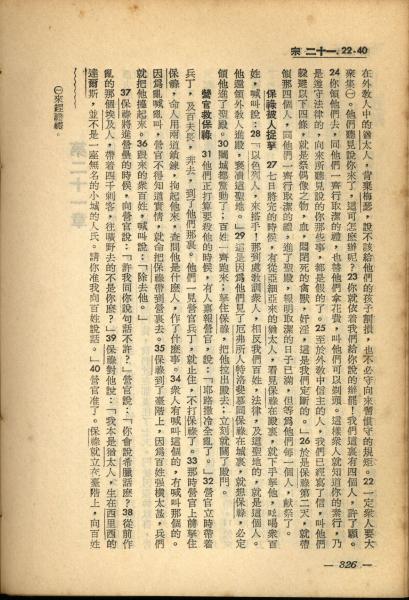 宗 二十一. 22-40
在外敎人中的猶太人，背棄梅瑟，說不該給他們的孩子割損，也不必守向來習慣守的規矩。22 一定衆人要大
來集㊀。他們聽見說你來了，這可怎麼辦呢？23 你就依着我們給你說的辦罷！我們這裏有四個人，許了願。
24 你領他們去，同他們一齊行取潔的禮，也替他們拿花費，叫他們可以剃頭。這樣衆人就知道你的素行，乃
是遵守法律的，向來所聽見說的你那些事，都是假的了。25 至於外敎中信主的人，我們已經寫了信，叫他們
戒避以下四條，就是祭偶像之物，血，悶死的禽獸，奸淫，這是我們定斷的。」26 於是保祿第二天，就帶
領那四個人，同他們一齊行取潔的禮，進了聖殿，報明取潔的日子已滿，但等為他們每一個人，獻祭了。
保祿被人捉拏 27 七日將完的時候，有從亞細亞來的猶太人，看見保祿在殿裏，就下手拏他，吆喝衆百
姓，喊叫說：28 「以色列人，來搭手！那到處敎訓衆人，相反我們百姓，法律，及這聖地的，就是這個人。
他還領外敎人進殿，褻瀆這聖地。」29 這是因為他們見了厄弗所人特洛斐慕同保祿在城裏，就想保祿，必定
領他進了聖殿。30 闔城都驚動了；百姓一齊跑來；拏住保祿，把他拉出殿去；立刻就關了殿門。
營官救保祿 31 他們正打算要殺他的時候，有人禀報營官，說：「耶路撒冷全亂了。」32 營官立時帶着
兵丁，及百夫長，奔去，到了他們那裏。他們一見營官兵丁，就止住，不打保祿了。33 那時營官上前拏住
保祿，命人用兩道鎖鍊，拘起他來，查問他是什麼人，作了什麼事。34 衆人有喊叫這個的，有喊叫那個的。
因為亂喊叫，營官不得知道實情，就命把保祿帶到營裏去。35 保祿到了臺階上，因為百姓强橫太甚，兵們
就把他擡起來。36 跟來的衆百姓，喊叫說：「除去他。」
37 保祿將進營壘的時候，向營官說：「許我同你說句話不許？」營官說：「你會說希臘話麼？38 從前作
亂的那個埃及人，帶着四千刺客，往曠野去的不是你麼？」39 保祿對他說：「我本是猶太人，生在西里西的
達爾斯，並不是一座無名的小城的人民。請你准我向百姓說話。」40 營官准了。保祿就立在臺階上，向百姓
— 326 —